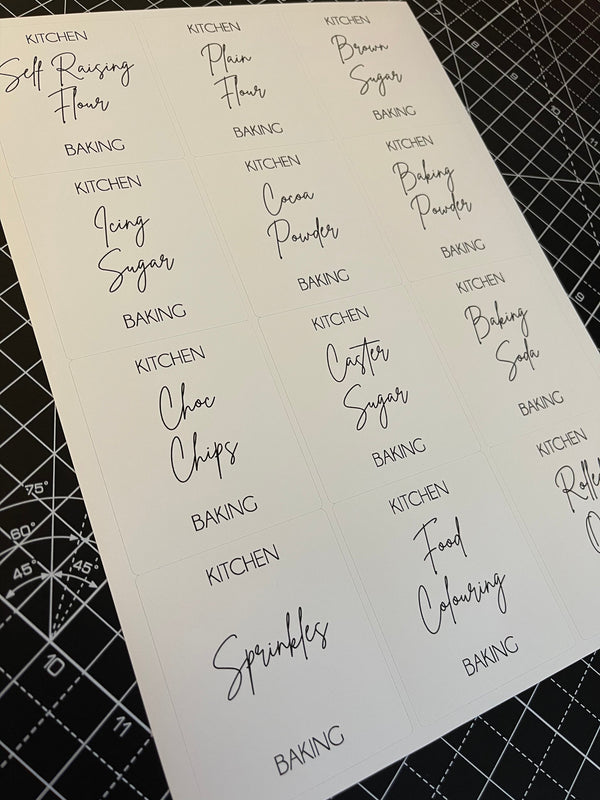 KITCHEN
Self Raising
Flour
BAKING
KITCHEN
Plain
Flour
BAKING
KITCHEN
Brown
Sugar
BAKING
KITCHEN
Icing
Sugar
BAKING
KITCHEN
Cocoa
Powder
BAKING
KITCHEN
Baking
Powder
BAKING
KITCHEN
Choc
Chips
BAKING
KITCHEN
Caster
Sugar
BAKING
KITCHEN
Baking
Soda
BAKING
KITCHEN
Sprinkles
BAKING
KITCHEN
Food
Colouring
BAKING
KITCHEN
75°
60°
45°
45°
10
11